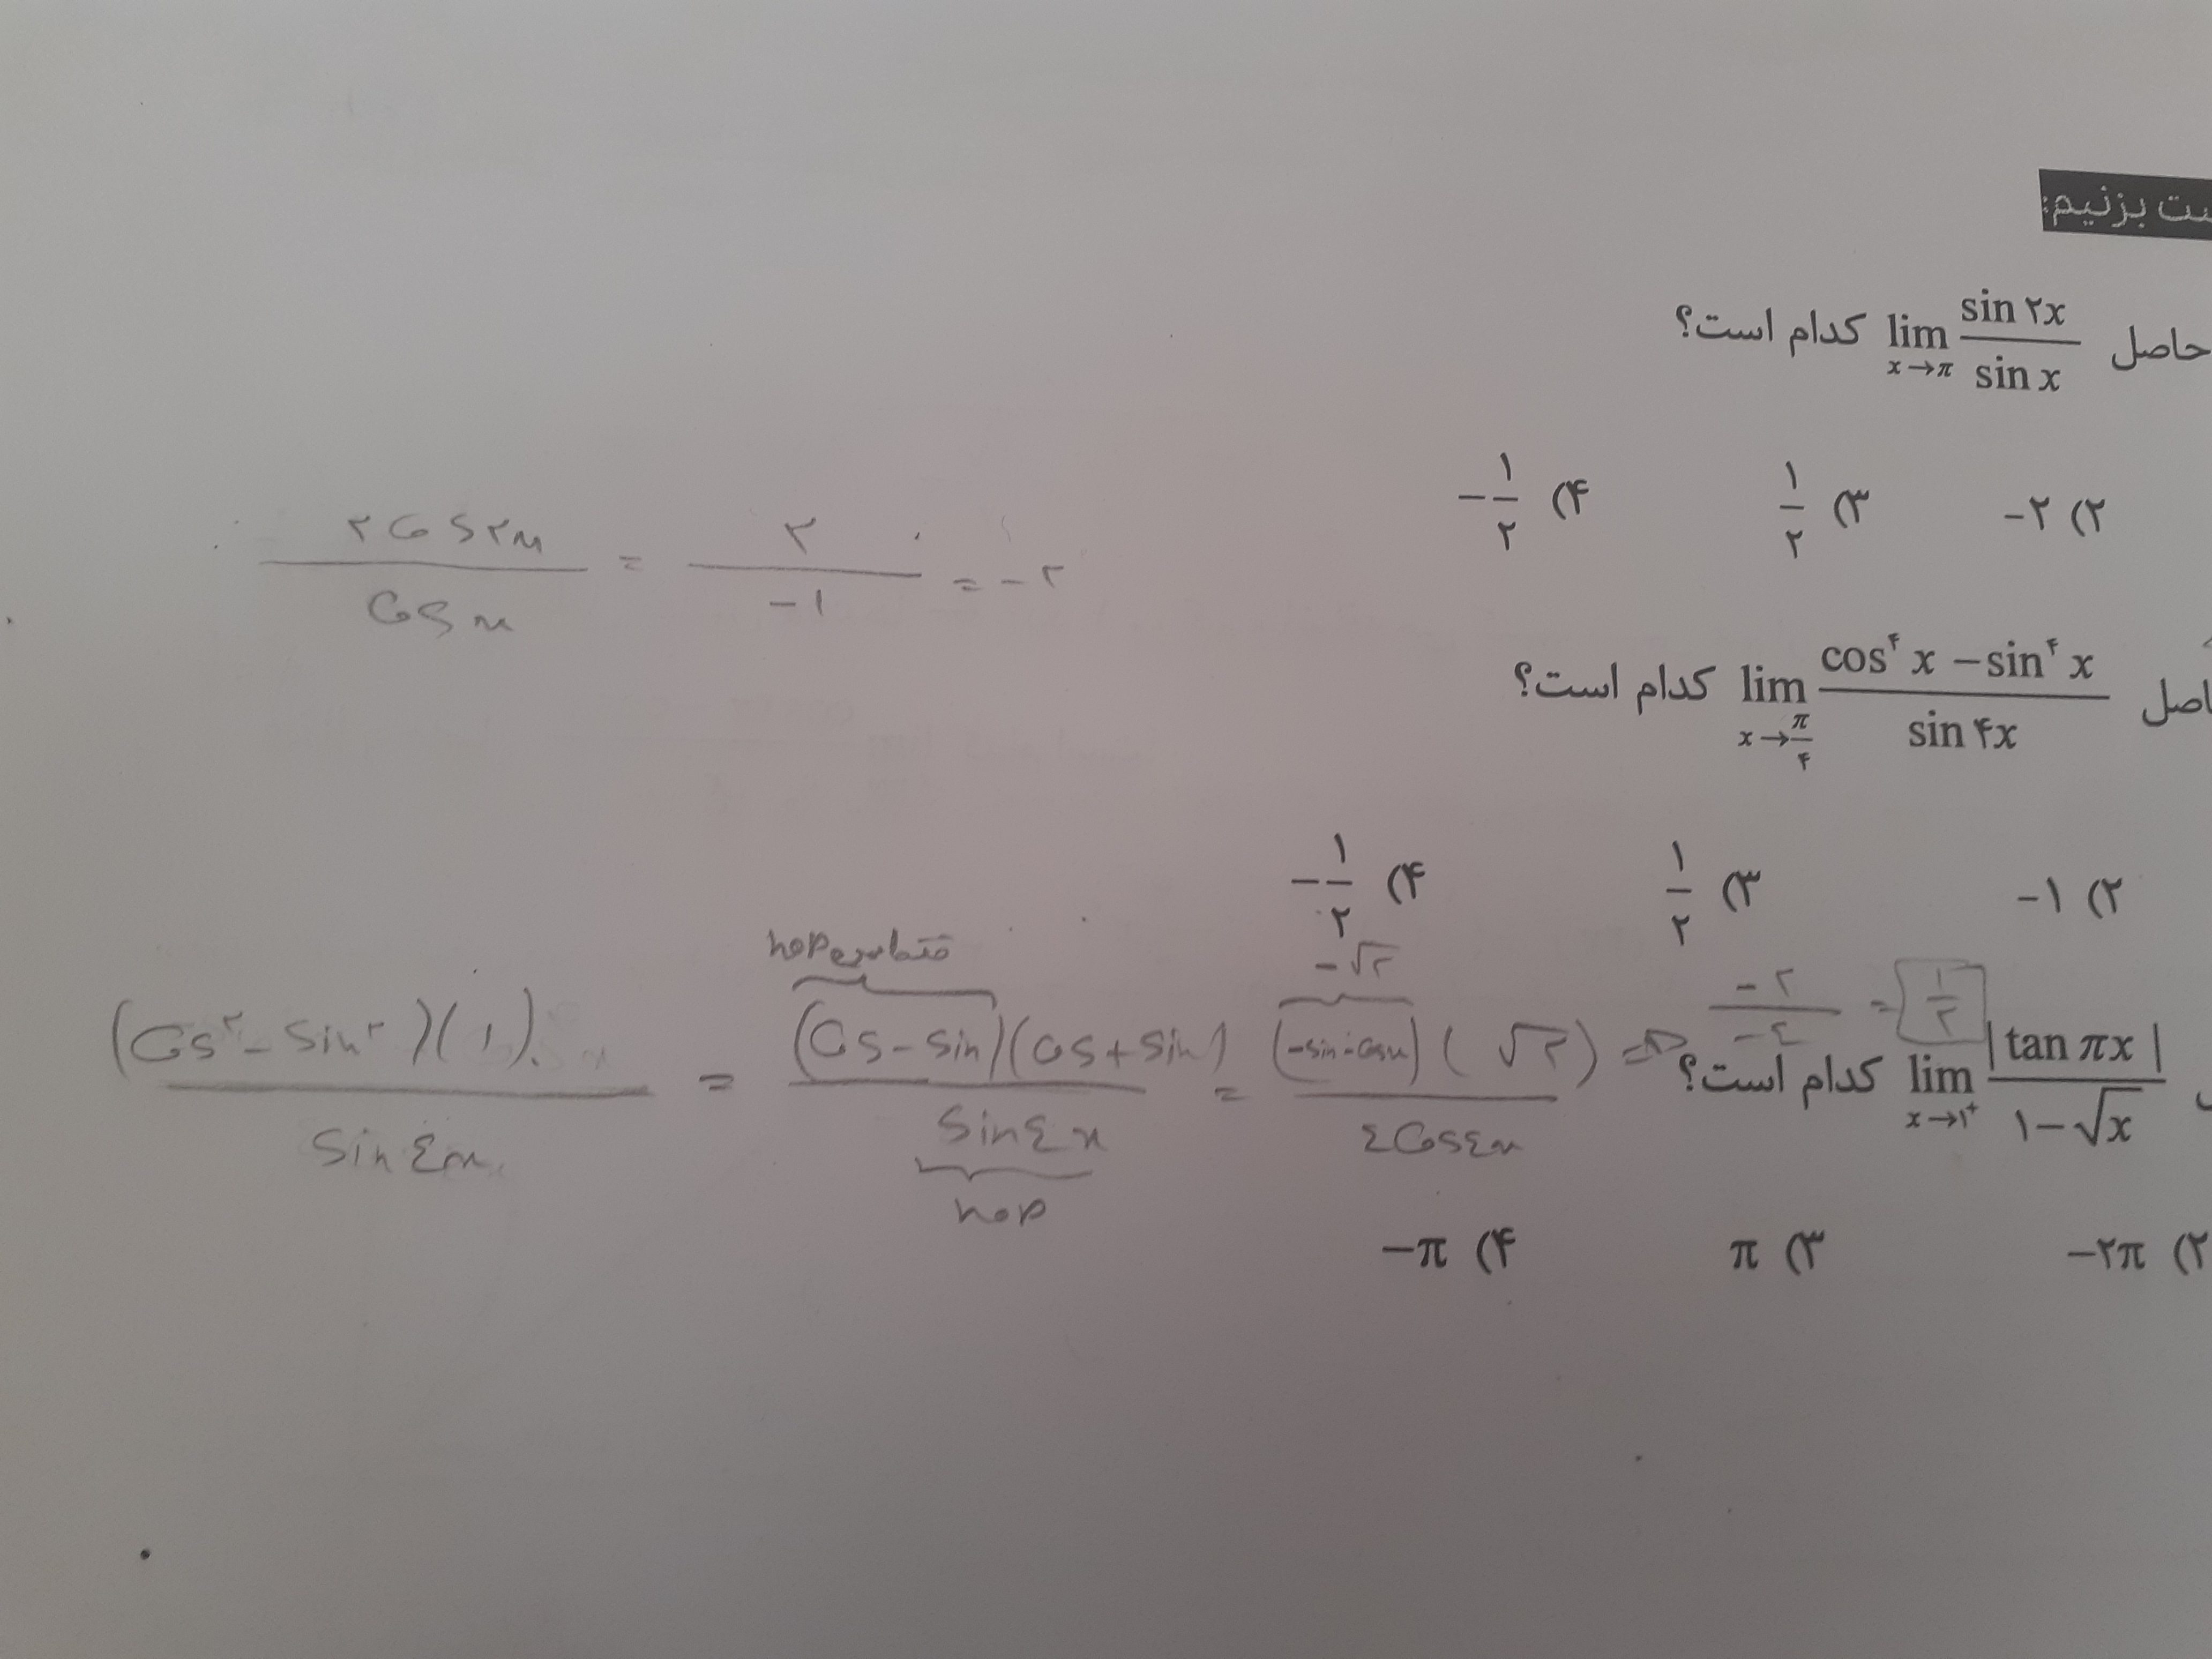 ست بزنیم:
حاصل lim x→π sin ۲x / sin x کدام است؟
۲) -۲ ۳) ۱/۲ ۴) -۱/۲
۲Cos۲x / Cosx = ۲ / -۱ = -۲
اصل lim x→π/۴ cos⁴ x - sin⁴ x / sin ۴x کدام است؟
۲) -۱ ۳) ۱/۲ ۴) -۱/۲
(Cos² - Sin²)(۱) / Sin٤x = (Cos - Sin)(Cos + Sin) / Sin٤x = (-Sin - Cosx)(√۲) / ٤Cos٤x ⇒ -۲ / -٤ = ۱/۲
hop
-√۲
hop
lim x→۱⁺ |tan πx| / ۱-√x کدام است؟
۲) -۲π ۳) π ۴) -π